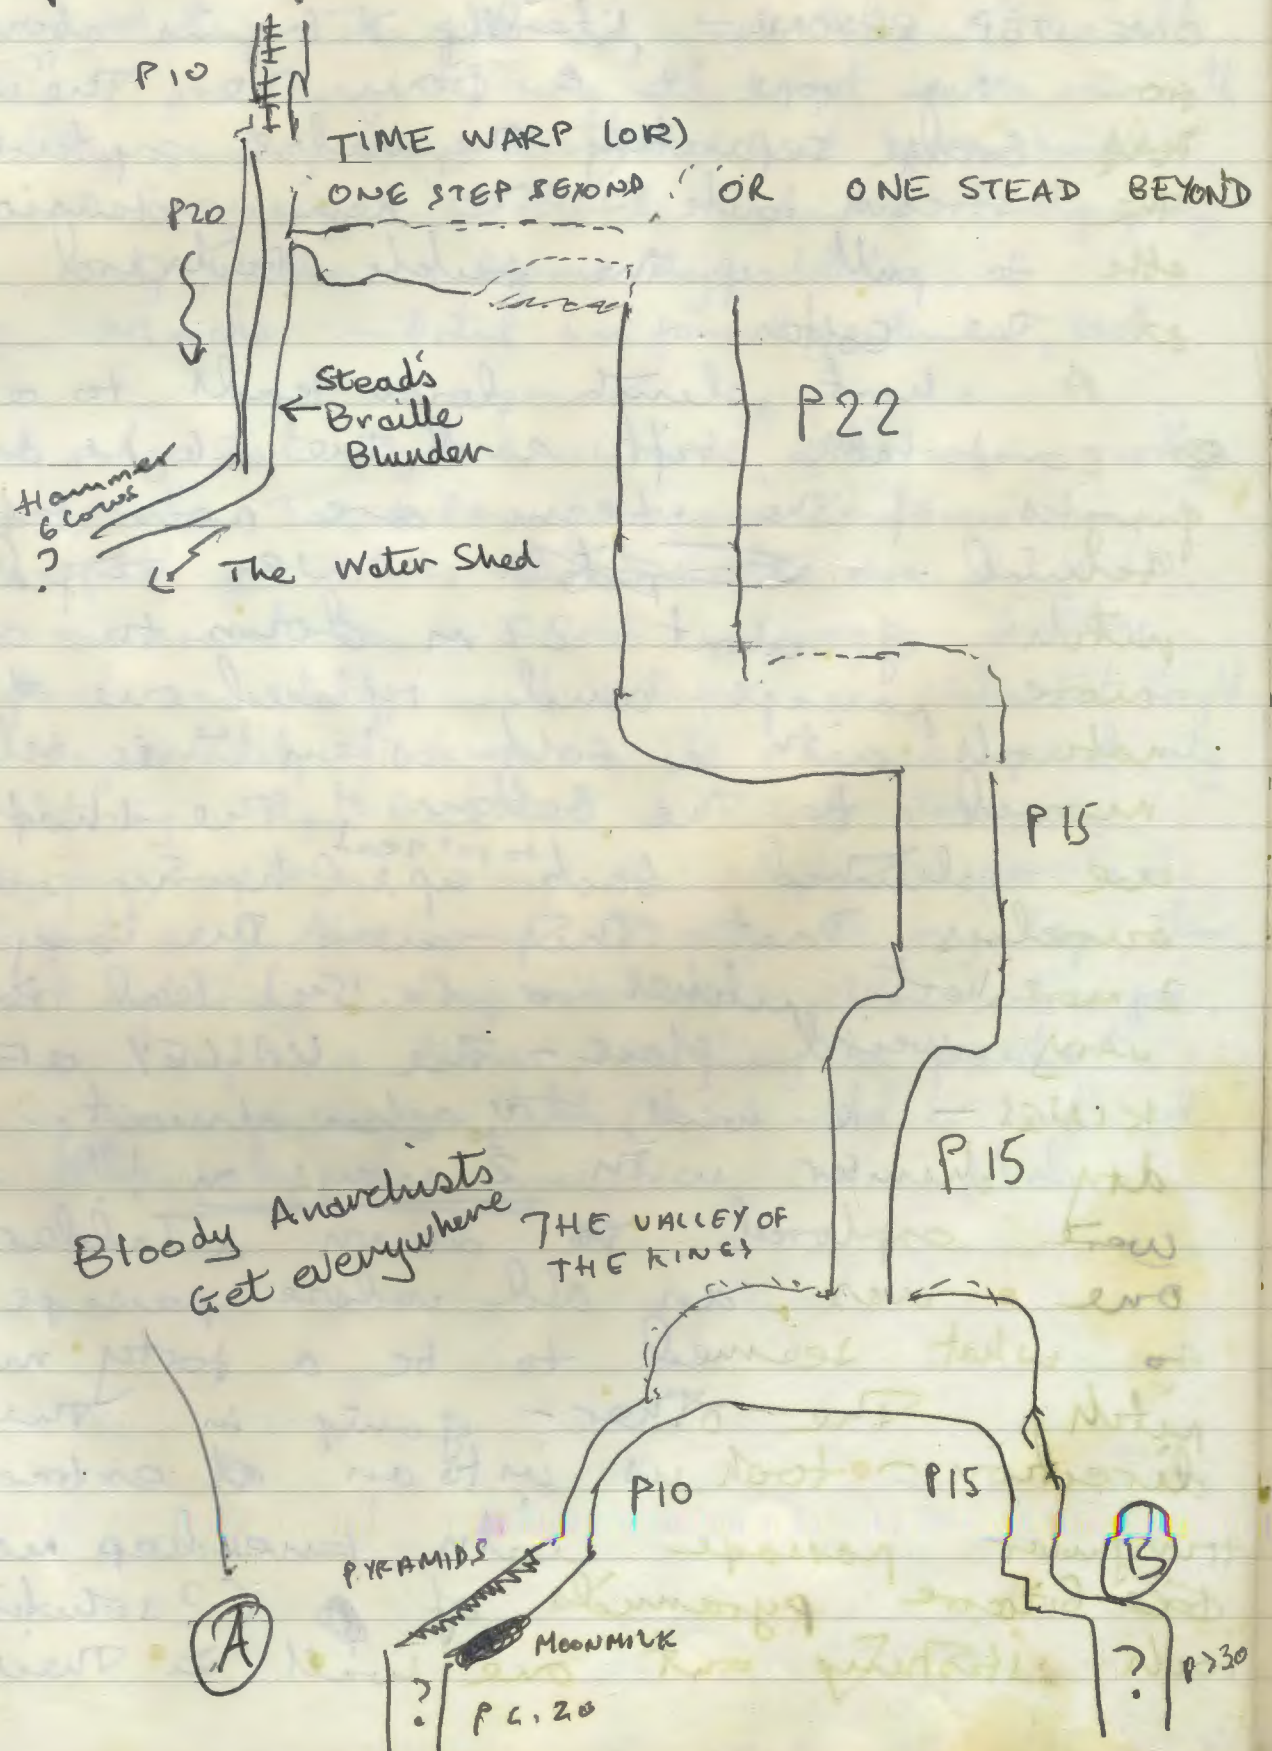 P10
TIME WARP (OR)
ONE STEP BEYOND! OR ONE STEAD BEYOND
P20
Stead's
Braille
Blunder
P22
Hammer
6 cows
?
The Water Shed
P15
P15
Bloody Anarchists
Get everywhere
THE VALLEY OF
THE KINGS
P10
P15
PYRAMIDS
B
A
MOONMILK
?
P c. 20
?
P>30